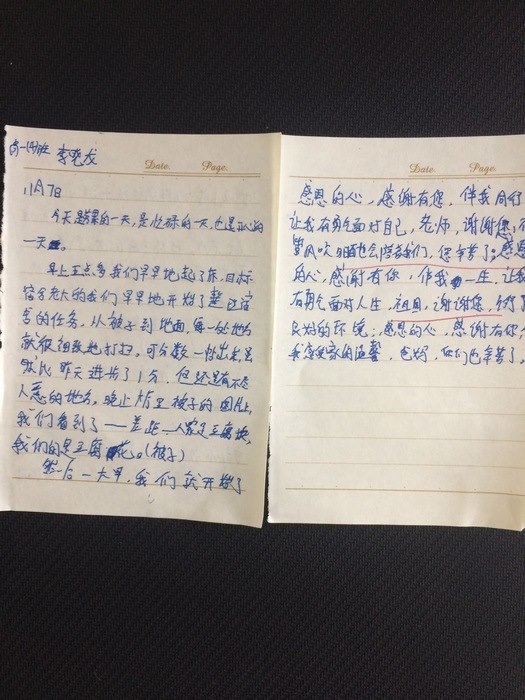 高一(4)班 李晓龙
Date. Page.
11月7日
今天是累的一天,是忙碌的一天,也是开心的
一天。
早上五点多我们早早地起了床,目标
宿舍老大的我们早早地开始了整 宿
舍的任务。从被子到地面,每一处地方
就很细致地打扫。可分数一份出来,虽
然比昨天进步了1分,但还是有不尽
人意的地方。晚上 被子的图片,
我们看到了——差距,人家是豆腐块,
我们的是豆腐花。(被子)
然后一大早,我们就开始了
Date. Page.
感恩的心,感谢有您,伴我同行
让我有勇气面对自己,老师,谢谢您,
管风吹日晒也会陪着我们,您辛苦了。感恩
的心,感谢有你,伴我一生,让我
有勇气面对人生,祖国,谢谢您,
良好的环境;感恩的心,感谢有你,
我感受家的温馨,爸妈,你们也辛苦了。